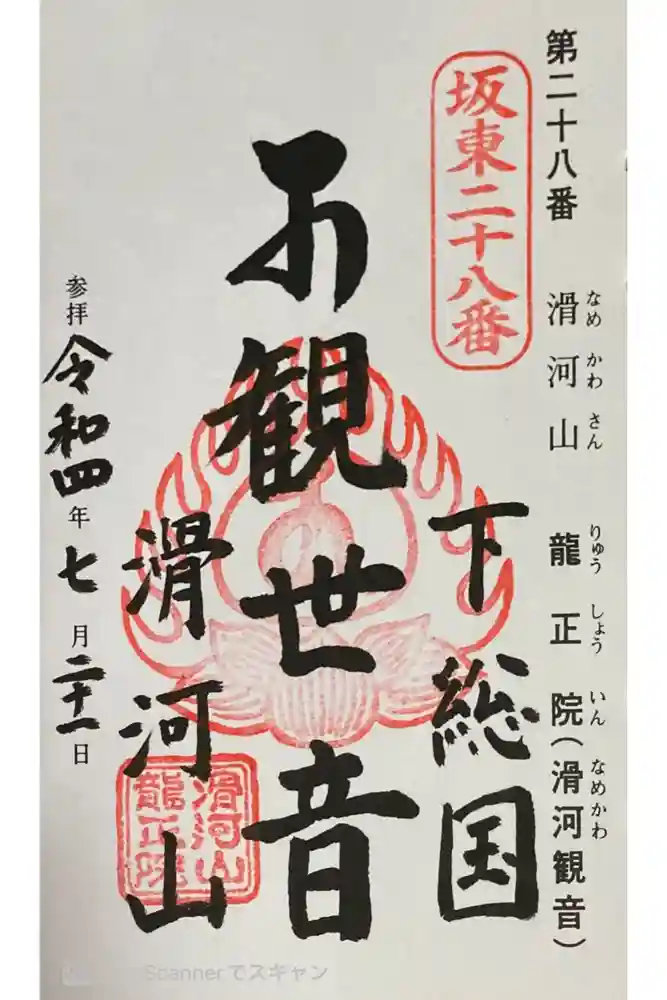 第二十八番 滑河山 龍正院(滑河観音)
なめ かわ さん りゅう しょう いん なめかわ
坂東二十八番
下総国
観世音
滑河山
滑河山
龍正院
参拝 令和四年七月二十一日
Scannerでスキャン